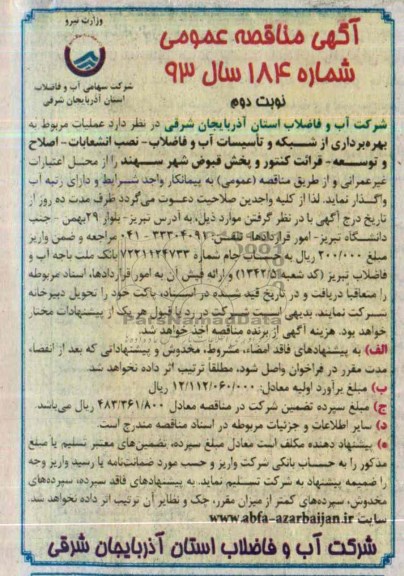 وزارت نیرو
شرکت سهامی آب و فاضلاب
استان آذربایجان شرقی
آگهی مناقصه عمومی
شماره ۱۸۴ سال ۹۳
نوبت دوم
شرکت آب و فاضلاب استان آذربایجان شرقی در نظر دارد عملیات مربوط به
بهره‌برداری از شبکه و تأسیسات آب و فاضلاب- نصب انشعابات- اصلاح
و توسعه- قرائت کنتور و پخش قبوض شهر سهند را از محل اعتبارات
غیرعمرانی و از طریق مناقصه (عمومی) به پیمانکار واجد شرایط و دارای رتبه آب
واگذار نماید. لذا از کلیه واجدین صلاحیت دعوت می‌گردد ظرف مدت ده روز از
تاریخ درج آگهی با در نظر گرفتن موارد ذیل، به آدرس تبریز- بلوار ۲۹بهمن - جنب
دانشگاه تبریز- امور قراردادها، تلفن: ۳۳۳۰۴۰۹۱ - ۰۴۱ مراجعه و ضمن واریز
مبلغ ۲۰۰/۰۰۰ ریال به حساب جام شماره ۷۲۲۱۱۲۴۷۳۳ بانک ملت باجه آب و
فاضلاب تبریز (کد شعبه ۱۳۴۲/۵) و ارائه فیش آن به امور قراردادها، اسناد مربوطه
را متعاقبا دریافت و در تاریخ قید شده در اسناد، پاکت خود را تحویل دبیرخانه
شرکت نمایند. بدیهی است شرکت در رد یا قبول هر یک از پیشنهادات مختار
خواهد بود. هزینه آگهی از برنده مناقصه اخذ خواهد شد.
ParsNamadData
الف) به پیشنهادهای فاقد امضاء، مشروط، مخدوش و پیشنهاداتی که بعد از انقضاء
مدت مقرر در فراخوان واصل شود، مطلقاً ترتیب اثر داده نخواهد شد.
ب) مبلغ برآورد اولیه معادل: ۱۲/۱۱۲/۰۶۰/۰۰۰ ریال
ج) مبلغ سپرده تضمین شرکت در مناقصه معادل ۴۸۳/۳۶۱/۸۰۰ ریال می‌باشد.
د) سایر اطلاعات و جزئیات مربوطه در اسناد مناقصه مندرج است.
ه) پیشنهاد دهنده مکلف است معادل مبلغ سپرده، تضمین‌های معتبر تسلیم یا مبلغ
مذکور را به حساب بانکی شرکت واریز و حسب مورد ضمانت‌نامه یا رسید واریز وجه
را ضمیمه پیشنهاد به شرکت تسلیم نماید. به پیشنهادهای فاقد سپرده، سپرده‌های
مخدوش، سپرده‌های کمتر از میزان مقرر، چک و نظایر آن ترتیب اثر داده نخواهد شد.
سایت www.abfa-azarbaijan.ir
شرکت آب و فاضلاب استان آذربایجان شرقی